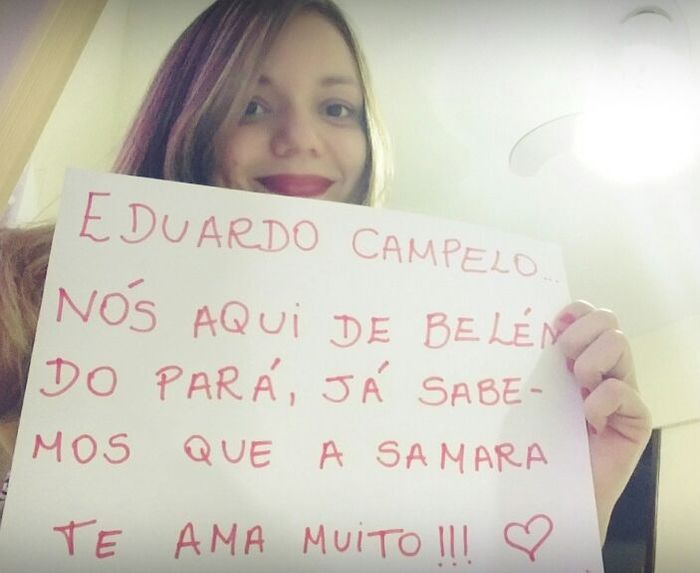 EDUARDO CAMPELO...
NÓS AQUI DE BELÉN
DO PARÁ, JÁ SABE-
MOS QUE A SAMARA
TE AMA MUITO!!! ♡